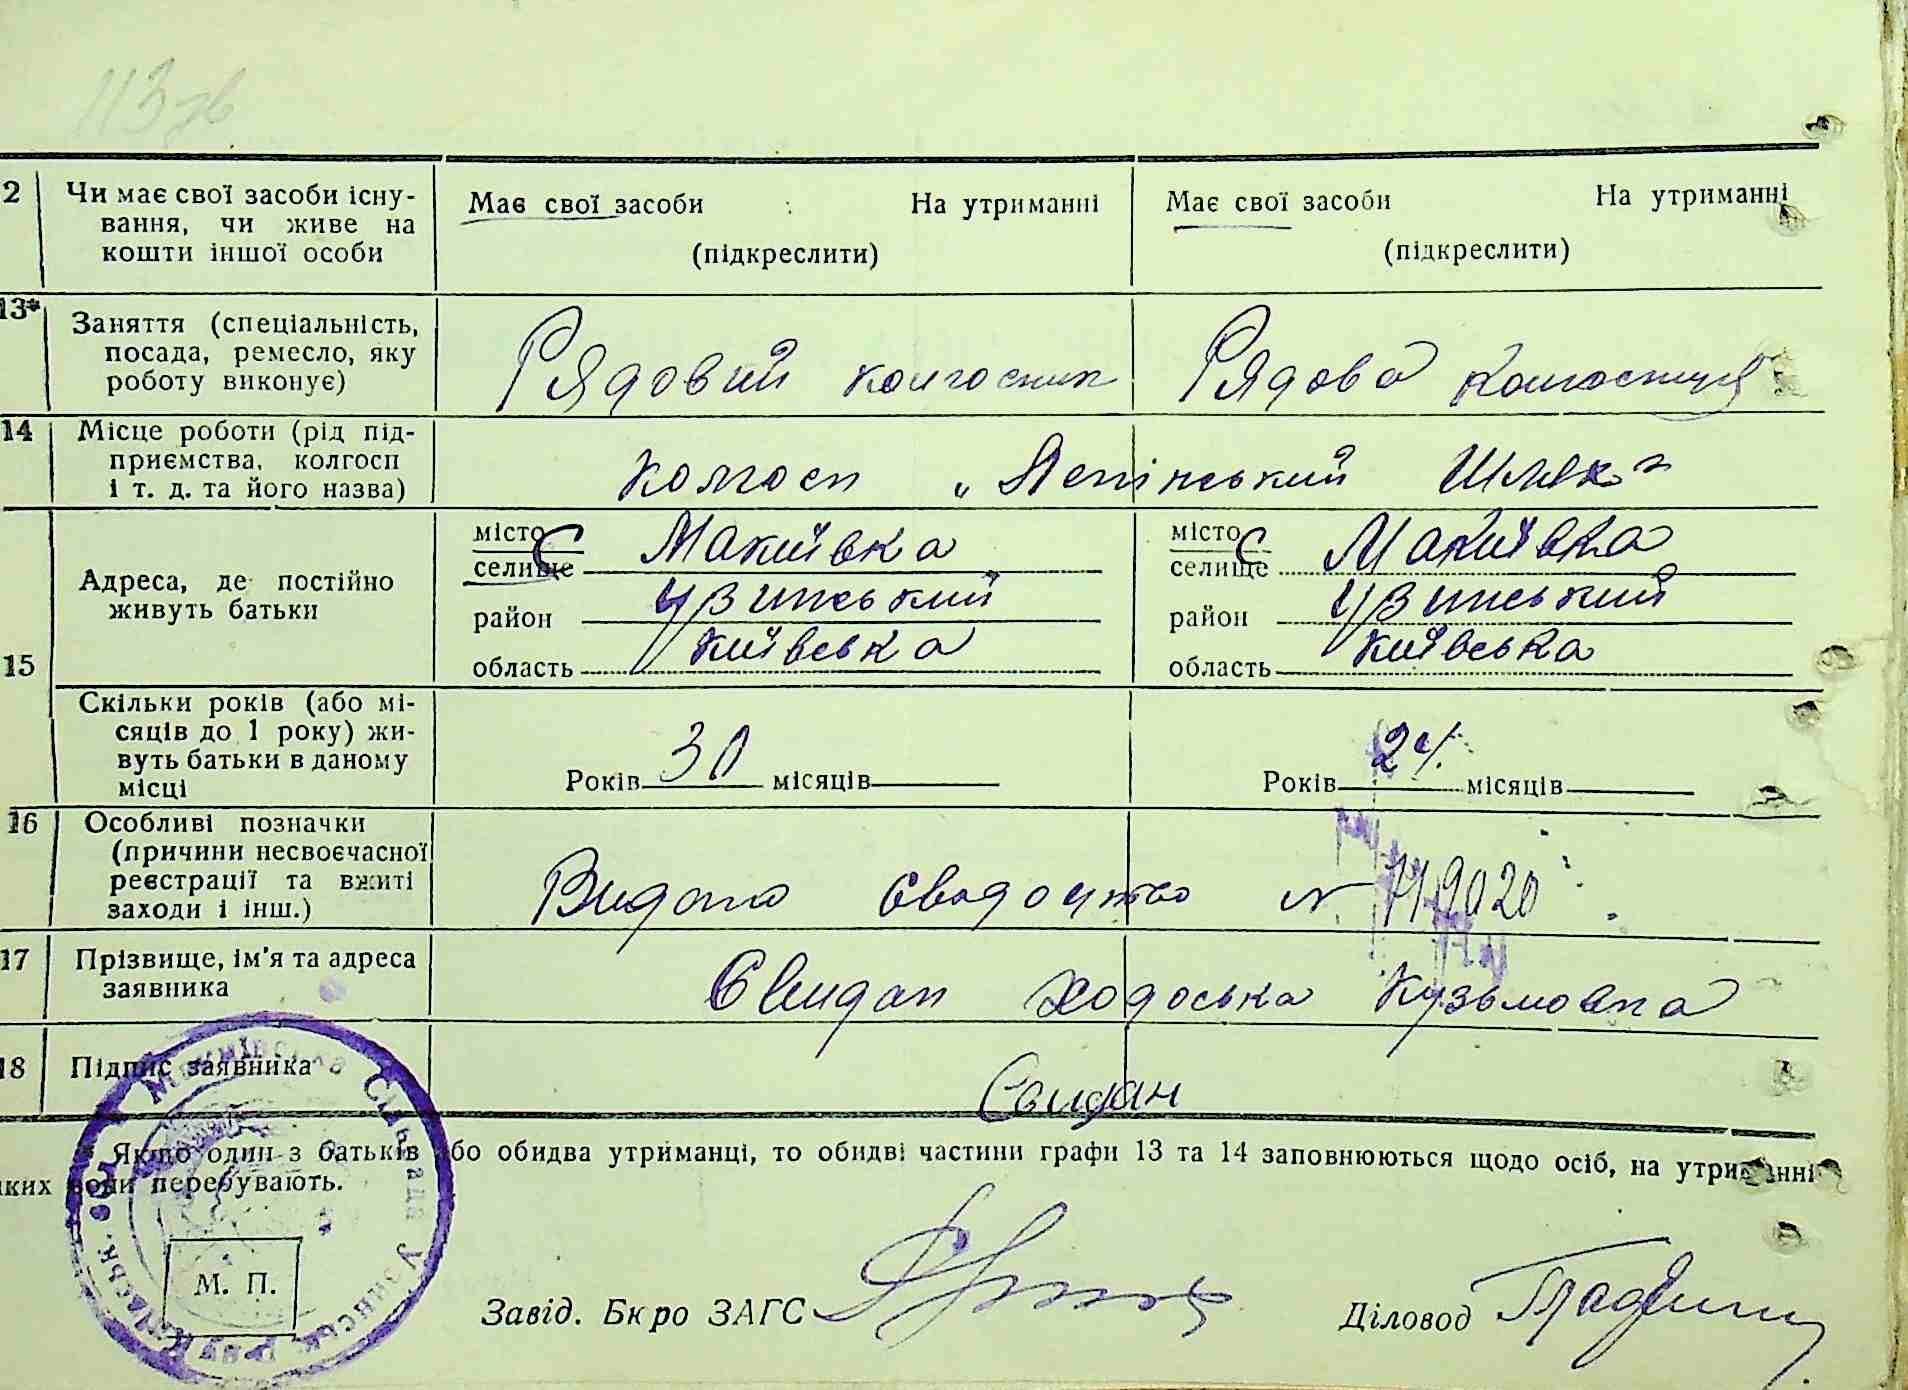 113 зв
2 Чи має свої засоби існу- Має свої засоби На утриманні Має свої засоби На утриманні
вання, чи живе на
кошти іншої особи (підкреслити) (підкреслити)
13* Заняття (спеціальність,
посада, ремесло, яку Рядовий колгосник Рядова колгосниця
роботу виконує)
14 Місце роботи (рід під-
приємства, колгосп колгосп „Ленінський Шлях"
і т. д. та його назва)
місто с Макиївка місто с Макиївка
селище селище
Адреса, де постійно
живуть батьки район Узинський район Узинський
15 область Київська область Київська
Скільки років (або мі-
сяців до 1 року) жи-
вуть батьки в даному
місці Років 30 місяців Років 24 місяців
16 Особливі позначки
(причини несвоєчасної
реєстрації та вжиті Видано свидоцтво №
заходи і інш.)
17 Прізвище, ім'я та адреса Свидан Ходоська Кузьмовна
заявника
18 Підпис заявника Свидан
* Якщо один з батьків або обидва утриманці, то обидві частини графи 13 та 14 заповнюються щодо осіб, на утриманні
яких вони перебувають.
М. П.
Завід. Бюро ЗАГС Діловод